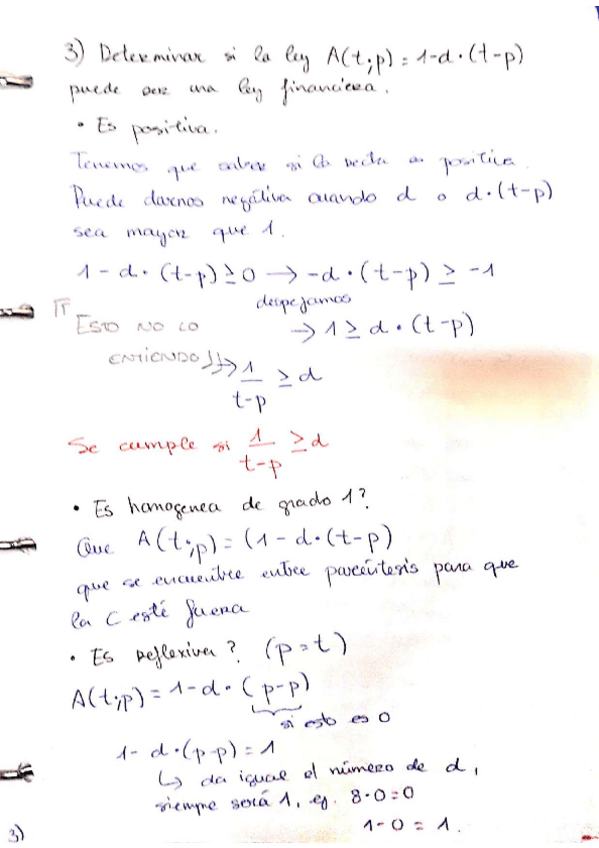 3) Determinar si la ley A(t;p) = 1-d·(t-p)
puede ser una ley financiera.
• Es positiva.
Tenemos que saber si la recta es positiva.
Puede darnos negativa cuando d o d·(t-p)
sea mayor que 1.
1 - d·(t-p) ≥ 0 → -d·(t-p) ≥ -1
despejamos
ESTO NO LO → 1 ≥ d·(t-p)
ENTIENDO!! → 1/(t-p) ≥ d
Se cumple si 1/(t-p) ≥ d
• Es homogenea de grado 1?
Que A(t;p) = (1 - d·(t-p)
que se encuentre entre paréntesis para que
la C esté fuera
• Es reflexiva? (p=t)
A(t;p) = 1-d·(p-p)
si esto es 0
1- d·(p-p) = 1
↳ da igual el número de d,
siempre será 1, eg. 8·0=0
1-0 = 1.
3)